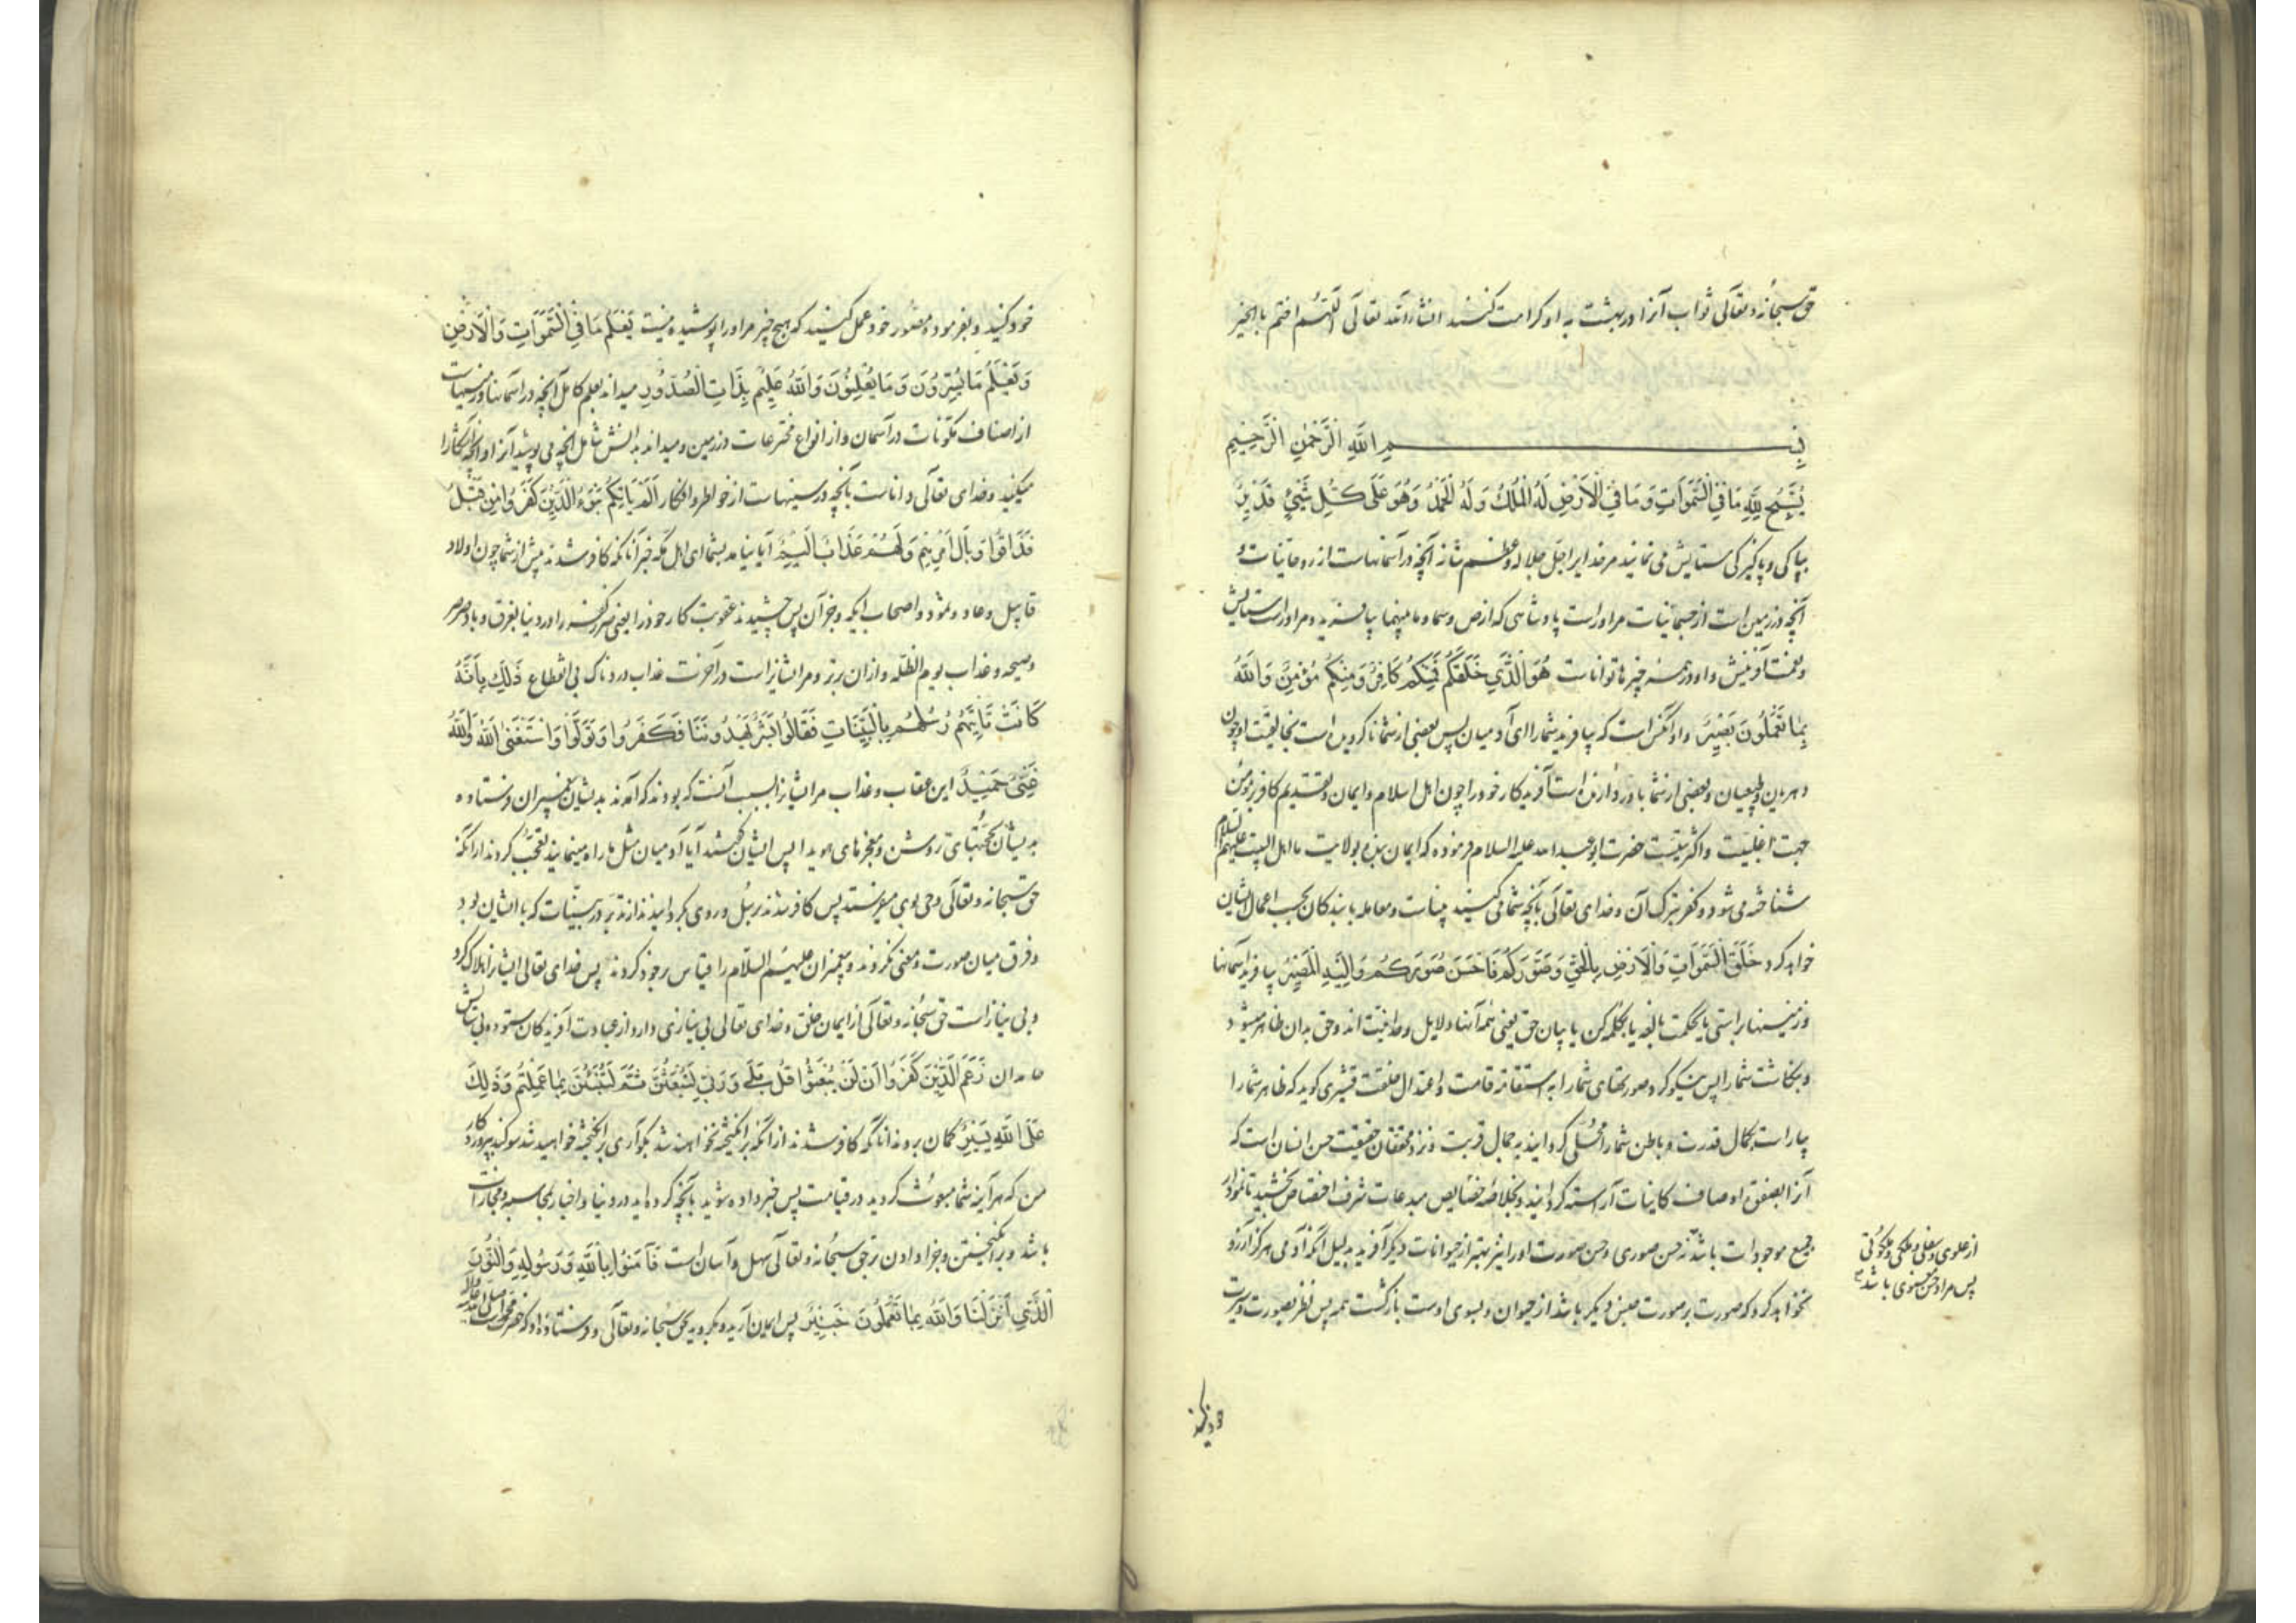 حق سبحانه و تعالی ثواب آنرا در بهشت به او کرامت کنند انشاء الله تعالی اللهم اختم بالخیر
بسم الله الرحمن الرحیم
یُسَبِّحُ لِلَّهِ مَا فِی السَّمٰوَاتِ وَمَا فِی الْاَرْضِ لَهُ الْمُلْكُ وَلَهُ الْحَمْدُ وَهُوَ عَلٰی کُلِّ شَیْءٍ قَدِیرٌ
بپاکی و پاکیزکی ستایش می نمایند مر خدایرا جل جلاله و عظم شانه آنچه در آسمانهاست از روحانیات و
آنچه در زمین است از جسمانیات مر اوراست پادشاهی که ارض و سما و ما بینهما بیافرید و مر اوراست ستایش
و نعمت آفرینش و او در همه چیزها تواناست هُوَ الَّذِی خَلَقَکُمْ فَمِنْکُمْ کَافِرٌ وَمِنْکُمْ مُؤْمِنٌ وَاللَّهُ
بِمَا تَعْمَلُونَ بَصِیرٌ و او آنکس است که بیافرید شما را ای آدمیان پس بعضی از شما ناکرویده است بخالقیت او چون
دهریان و طبیعیان و بعضی از شما باور دارنده است آفریدکار خود را چون اهل اسلام و ایمان و تقدیم کافر بر مومن
جهت اغلبیت و اکثریتست حضرت ابو عبد الله علیه السلام فرموده که ایمان بنده بولایت ما اهل البیت علیهم السلام
شناخته می شود و کفر بترک آن و خدای تعالی بآنچه شما می کنید بیناست و معامله با بندکان بحسب اعمال ایشان
خواهد کرد خَلَقَ السَّمٰوَاتِ وَالْاَرْضَ بِالْحَقِّ وَصَوَّرَکُمْ فَاَحْسَنَ صُوَرَکُمْ وَاِلَیْهِ الْمَصِیرُ بیافرید آسمانها
و زمینها براستی یا بحکمت بالغه یا بکلمه کن یا بیان حق یعنی همه آنها دلایل وحدانیت اند و حق بدان ظاهر میشود
و بنکاشت شما را پس نیکو کرد صورتهای شما را به استقامة قامت و اعتدال خلقت قشیری کوید که ظاهر شما را
بیاراست بکمال قدرت و باطن شما را محلی کردانید به جمال قربت و نزد محققان حقیقت حسن انسان است که
آنرا بصفوة اوصاف کاینات آراسته کردانید و بخلاصه خصایص مبدعات شرف اختصاص بخشید تا نمودار
جمیع موجودات باشد نه حسن صوری و حسن صورت او را نیز بهتر از حیوانات دیکر آفرید بدلیل آنکه آدمی هرکز آرزو
نخواهد کرد که صورت بر صورت جنس دیکر باشد از حیوان و بسوی اوست بازکشت همه پس نظر بصورت و سیرت
از علوی و سفلی و ملکی و ملکوتی
پس مراد حسن معنوی باشد
خود کنید
خود کنید و بفرموده مصور خود عمل کنید که هیچ چیز مر او را پوشیده نیست یَعْلَمُ مَا فِی السَّمٰوَاتِ وَالْاَرْضِ
وَیَعْلَمُ مَا تُسِرُّونَ وَمَا تُعْلِنُونَ وَاللَّهُ عَلِیمٌ بِذَاتِ الصُّدُورِ میداند بعلم کامل آنچه در آسمانها و زمینهاست
از اصناف مکونات در آسمان و از انواع مخترعات در زمین و میداند بدانش شامل آنچه می پوشید آنرا و آنچه آشکارا
میکنید و خدای تعالی داناست بآنچه در سینهاست از خواطر و افکار اَلَمْ یَاْتِکُمْ نَبَؤُا الَّذِینَ کَفَرُوا مِنْ قَبْلُ
فَذَاقُوا وَبَالَ اَمْرِهِمْ وَلَهُمْ عَذَابٌ اَلِیمٌ آیا نیامد بشما ای اهل مکه خبر آنانکه کافر شدند پیش از شما چون اولاد
قابیل و عاد و ثمود و اصحاب ایکه و جز آن پس چشیدند عقوبت کار خود را یعنی ضرر کفر را در دنیا بغرق و باد صرصر
و صیحه و عذاب یوم الظله و از آن بتر و مر ایشانراست در آخرت عذاب دردناک بی انقطاع ذٰلِكَ بِاَنَّهُ
کَانَتْ تَاْتِیهِمْ رُسُلُهُمْ بِالْبَیِّنَاتِ فَقَالُوا اَبَشَرٌ یَهْدُونَنَا فَکَفَرُوا وَتَوَلَّوْا وَاسْتَغْنَی اللَّهُ وَاللَّهُ
غَنِیٌّ حَمِیدٌ این عقاب و عذاب مر ایشانرا بسبب آنست که بودند که آمدند بدیشان پیغمبران فرستاده
بدیشان بحجتهای روشن و معجزهای هویدا پس ایشان کفتند آیا آدمیان مثل ما راه مینمایند تعجب کردند از آنکه
حق سبحانه و تعالی وحی بوی میفرستد پس کافر شدند برسل و روی بکردانیدند از تدبر در بینات که با ایشان بود
و فرق میان صورت و معنی نکردند و پیغمبران علیهم السلام را قیاس بر خود کردند پس خدای تعالی ایشانرا هلاک کرد
و بی نیاز است حق سبحانه و تعالی از ایمان خلق و خدای تعالی بی نیازی دارد از عبادت آفریدکان ستوده بی ستایش
حامدان زَعَمَ الَّذِینَ کَفَرُوا اَنْ لَنْ یُبْعَثُوا قُلْ بَلٰی وَرَبِّی لَتُبْعَثُنَّ ثُمَّ لَتُنَبَّؤُنَّ بِمَا عَمِلْتُمْ وَذٰلِكَ
عَلَی اللَّهِ یَسِیرٌ کمان بردند آنانکه کافر شدند از آنکه برانکیخته نخواهند شد بکو آری برانکیخته خواهید شد سوکند بپروردکار
من که هر آینه شما مبعوث کردید در قیامت پس خبر داده شوید بآنچه کرده اید در دنیا و اخبار بمحاسبه و مجازات
باشد و برانکیختن و جزا دادن بر حق سبحانه و تعالی سهل و آسان است فَآمِنُوا بِاللَّهِ وَرَسُولِهِ وَالنُّورِ
الَّذِی اَنْزَلْنَا وَاللَّهُ بِمَا تَعْمَلُونَ خَبِیرٌ پس ایمان آرید و بکروید بحق سبحانه و تعالی و فرستاده او که حضرت محمد است صلی الله علیه و آله